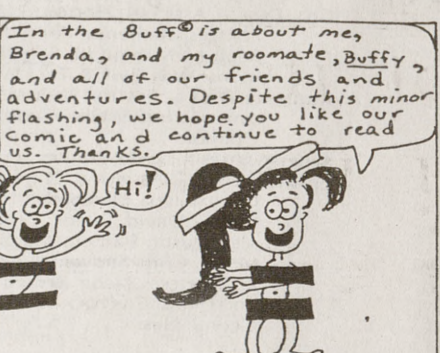 In the Buff© is about me,
Brenda, and my roomate, Buffy,
and all of our friends and
adventures. Despite this minor
flashing, we hope you like our
comic and continue to read
us. Thanks.
Hi!